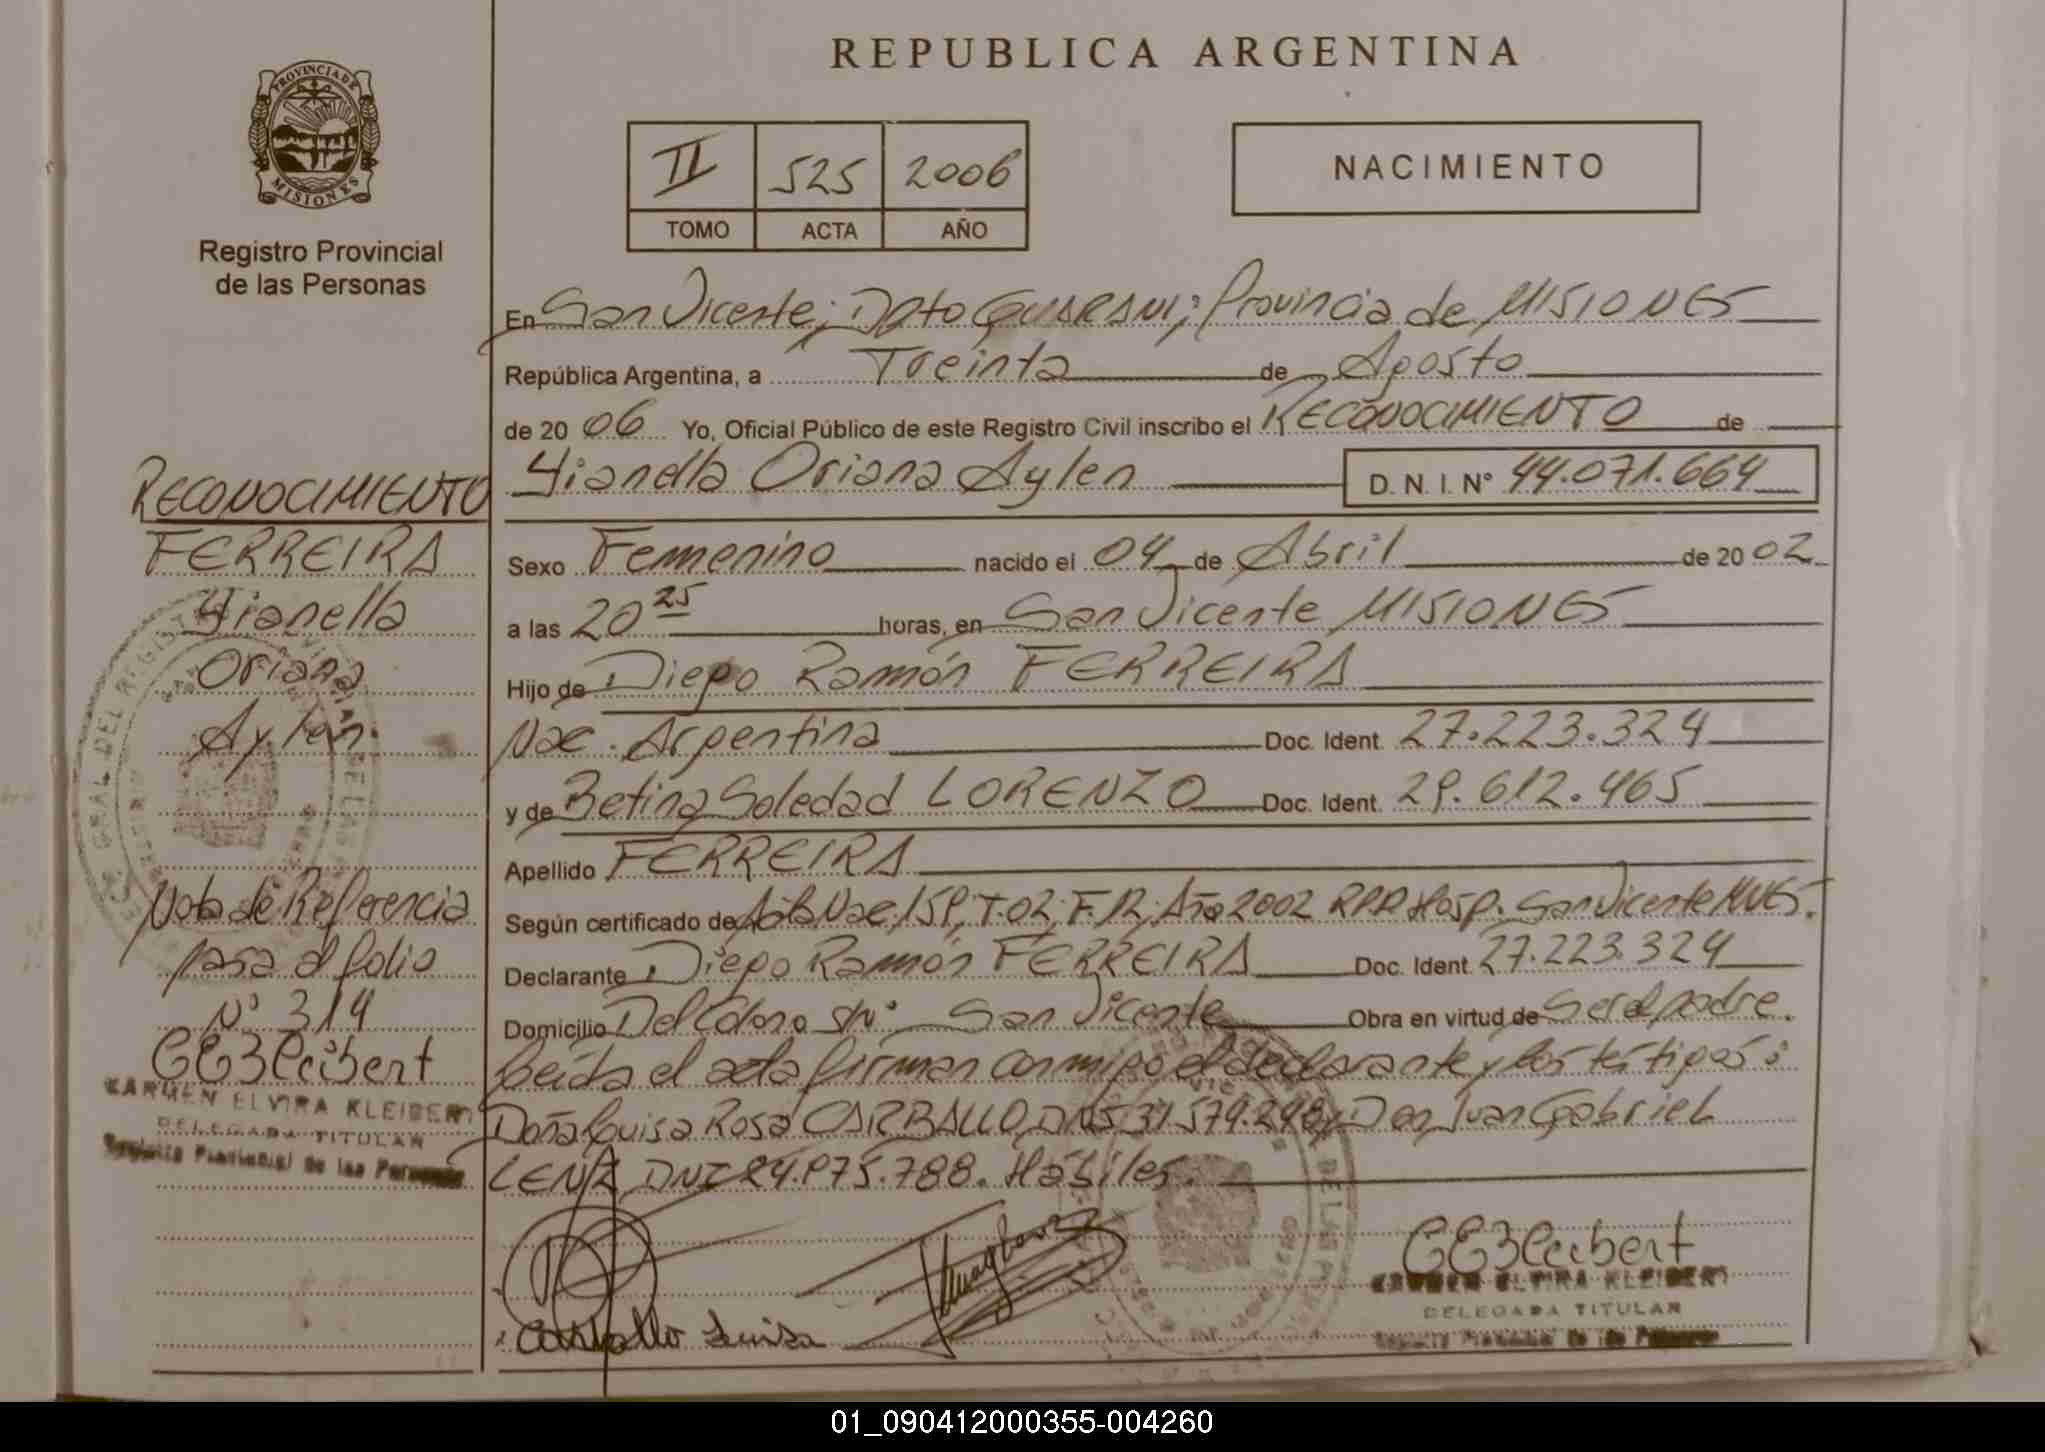 REPUBLICA ARGENTINA
PROVINCIA DE
MISIONES
Registro Provincial
de las Personas
II 525 2006
TOMO ACTA AÑO
NACIMIENTO
En San Vicente; Dpto GUARANI; Provincia de MISIONES
República Argentina, a Treinta de Agosto
de 2006 Yo, Oficial Público de este Registro Civil inscribo el RECONOCIMIENTO de
Yianella Oriana Aylen D. N. I. N° 44.071.664
Sexo Femenino nacido el 04 de Abril de 20 02
a las 20 25 horas, en San Vicente MISIONES
Hijo de Diego Ramón FERREIRA
Nac. Argentina Doc. Ident. 27.223.324
y de Betina Soledad LORENZO Doc. Ident. 29.612.465
Apellido FERREIRA
Según certificado de Nac, 159, T.02, F.12, Año 2002 RPP Hosp. San Vicente
Declarante Diego Ramón FERREIRA Doc. Ident 27.223.324
Domicilio San Vicente Obra en virtud de Ser el padre.
Leída el acta firman conmigo el declarante y los testigos:
Doña Luisa Rosa CARBALLO, 31.579.298 y Don Juan Gabriel
LENZ, DNI 24.975.788. Hábiles.
Carballo Luisa
CEKleibert
KARMEN ELVIRA KLEIBERT
DELEGADA TITULAR
Registro Provincial de las Personas
RECONOCIMIENTO
FERREIRA
Yianella
Oriana
Aylen
Nota de Referencia
pasa al folio
N° 314
CEKleibert
KARMEN ELVIRA KLEIBERT
DELEGADA TITULAR
Registro Provincial de las Personas
01_090412000355-004260